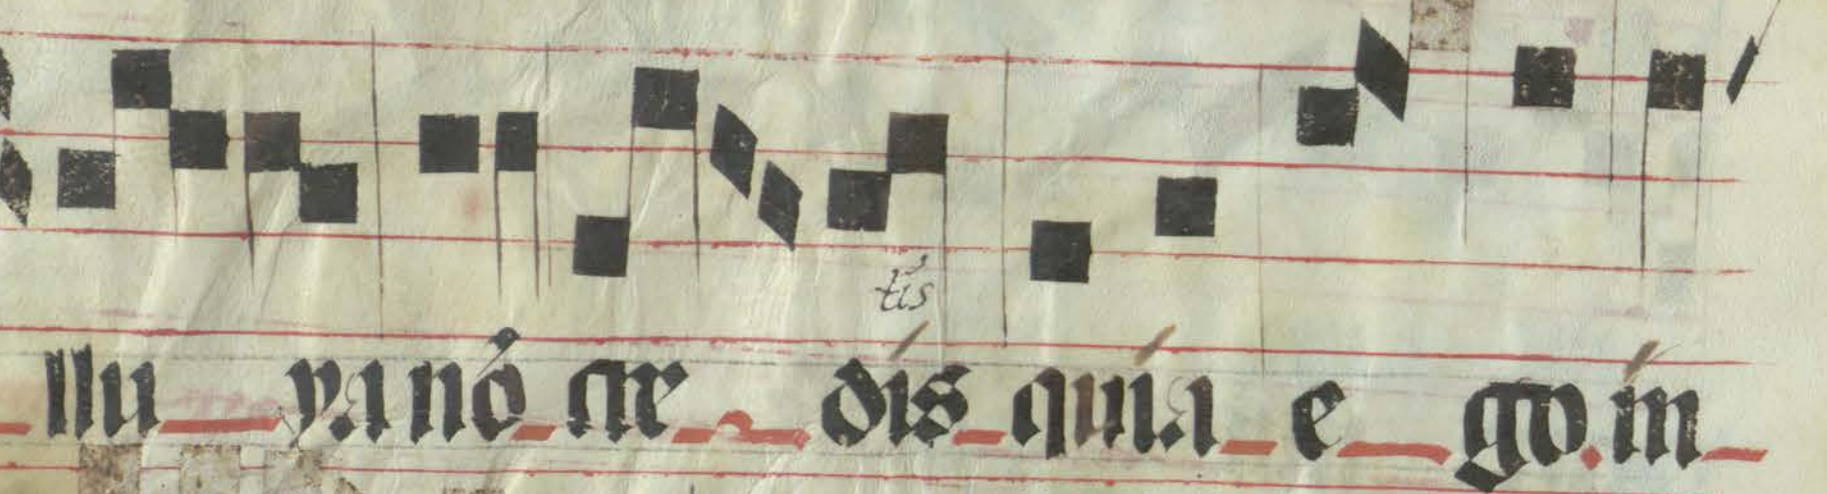 tis
llu ya nó ar dis quia e go. in